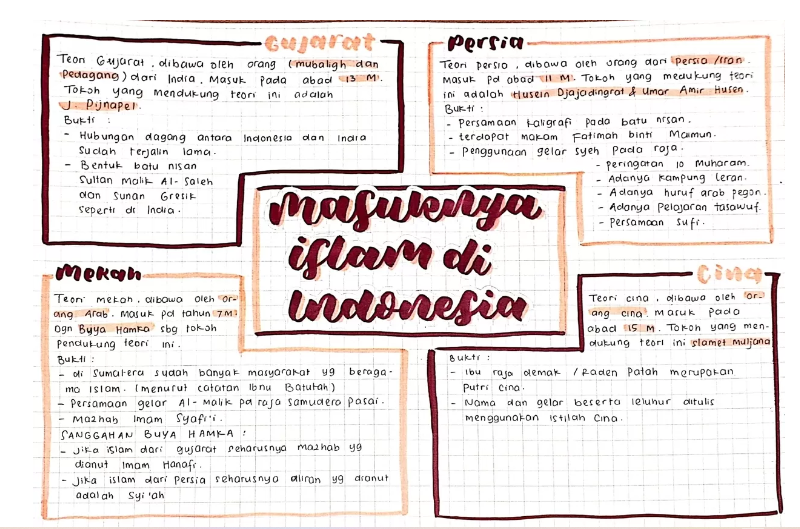 Gujarat
Teori Gujarat, dibawa oleh orang (mubaligh dan
Pedagang) dari India. Masuk pada abad 13 M.
Tokoh yang mendukung teori ini adalah
J. Pijnapel.
Bukti :
- Hubungan dagang antara Indonesia dan India
sudah terjalin lama.
- Bentuk batu nisan
Sultan Malik Al-Saleh
dan Sunan Gresik
seperti di India.
Persia
Teori persia, dibawa oleh orang dari persia /Iran.
Masuk pd abad 11 M. Tokoh yang medukung teori
ini adalah Husein Djajadingrat & Umar Amir Husen.
Bukti :
- Persamaan kaligrafi pada batu nisan.
- terdapat makam Fatimah binti Maimun.
- Penggunaan gelar syeh pada raja.
- peringatan 10 Muharam.
- Adanya kampung leran.
- Adanya huruf arab pegon.
- Adanya Pelajaran tasawuf.
- Persamaan sufi.
masuknya
islam di
indonesia
Mekah
Teori mekah, dibawa oleh or-
ang Arab. Masuk pd tahun 7M
dgn Buya Hamka sbg tokoh
pendukung teori ini.
Bukti :
- di Sumatera sudah banyak masyarakat yg beraga-
ma Islam. (menurut catatan Ibnu Batutah)
- Persamaan gelar Al-Malik pd raja samudera pasai.
- Mazhab Imam Syafi'i.
SANGGAHAN BUYA HAMKA :
- Jika islam dari gujarat seharusnya mazhab yg
dianut Imam Hanafi.
- Jika islam dari Persia seharusnya aliran yg dianut
adalah Syi'ah
Cina
Teori cina, dibawa oleh or-
ang cina. Masuk pada
abad 15 M. Tokoh yang men-
dukung teori ini slamet muljana
Bukti :
- Ibu raja demak /Raden Patah merupakan
Putri cina.
- Nama dan gelar beserta leluhur ditulis
menggunakan istilah Cina.